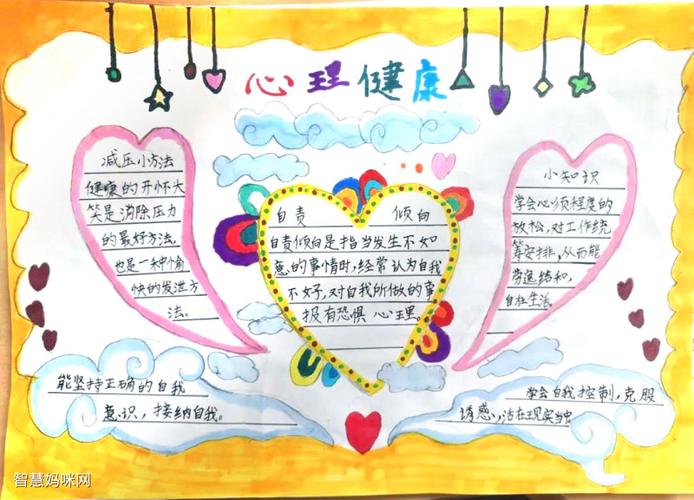 心理健康
减压小方法
健康的开怀大
笑是消除压力
的最好方法,
也是一种愉
快的发泄方
法。
自责 倾向
自责倾向是指当发生不如
意的事情时,经常认为自我
不好,对自我所做的事
报有恐惧心理。
小知识
学会心烦程度的
放松,对工作统
筹安排,从而能
劳逸结和,
自在生活。
能坚持正确的自我
意识,接纳自我。
学会自我控制,克服
诱惑,活在现实当中
智慧妈咪网